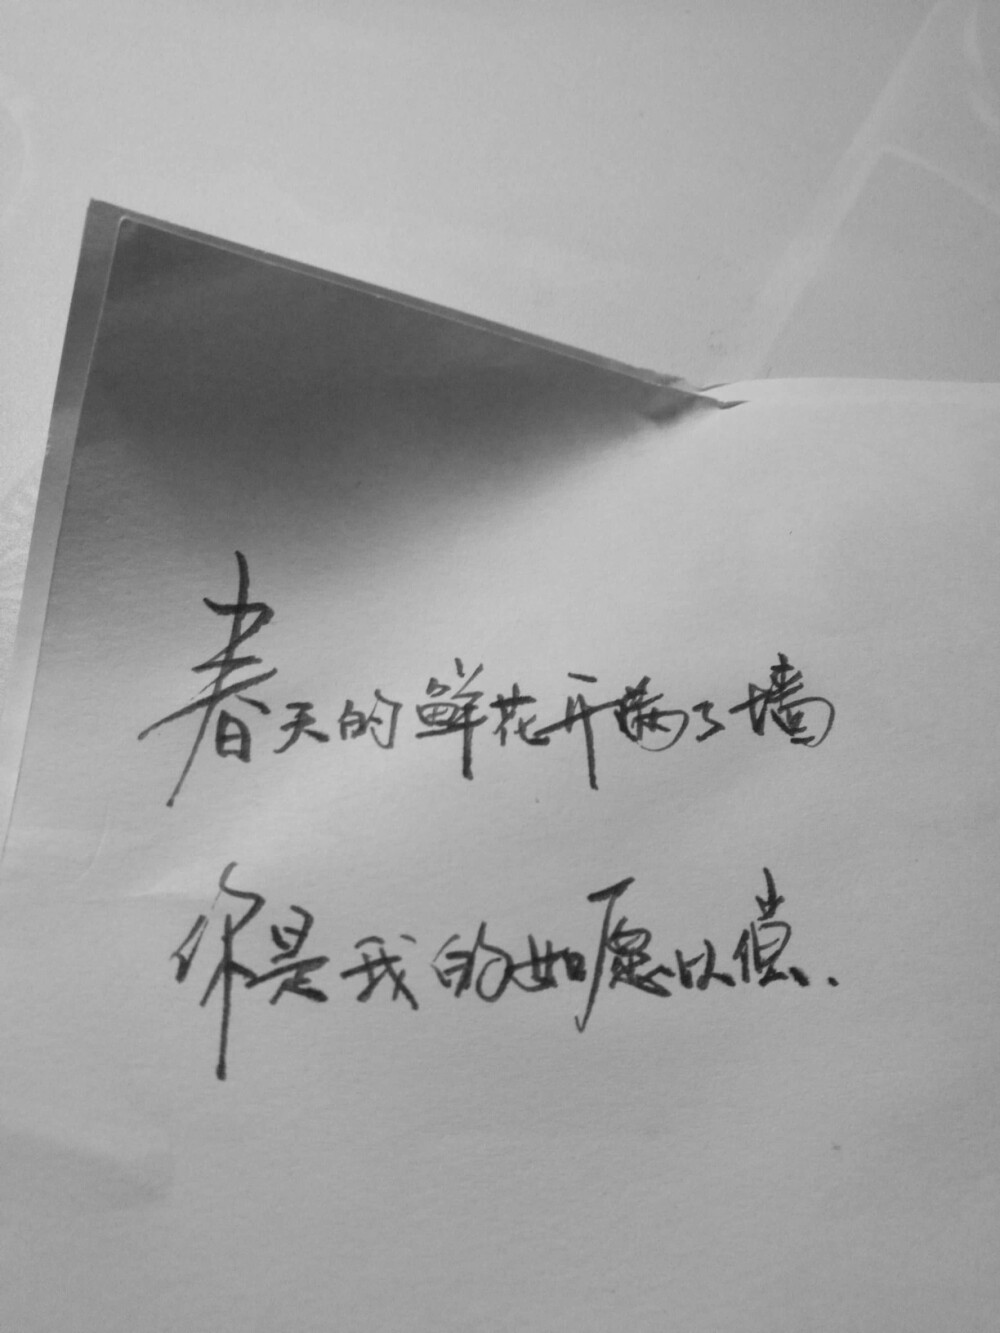 春天的鲜花开满了墙
你是我的如愿以偿.